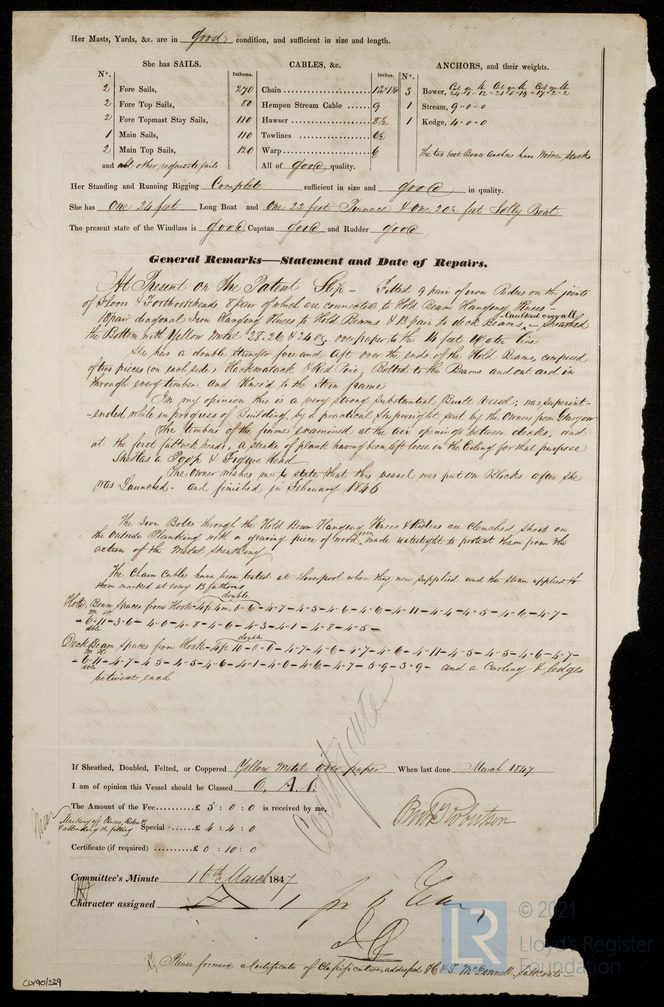 Her Masts, Yards, &c. are in good condition, and sufficient in size and length.
She has SAILS.
CABLES, &c.
ANCHORS, and their weights.
N°.
Fathoms.
Inches.
N°.
2 Fore Sails, 270 Chain 3 Bower,
2 Fore Top Sails, 80 Hempen Stream Cable 9 1 Stream, 9-0-0
2 Fore Topmast Stay Sails, 110 Hawser 8½ 1 Kedge, 4-0-0
1 Main Sails, 110 Towlines 6½
2 Main Top Sails, 120 Warp 6 The two best Bower Anchors have Wooden Stocks
and all other requisite sails All of good quality.
Her Standing and Running Rigging Complete sufficient in size and good in quality.
She has One 24 feet Long Boat and One 22 feet Pinnace & One 20½ feet Jolly Boat
The present state of the Windlass is good Capstan good and Rudder good
General Remarks—Statement and Date of Repairs.
At Present on the Patent Slip - Fitted 9 pair of iron Riders on the joints
of Floors & Foothooksheads 8 pair of which are connected to Hold Beam Hanging Knees -
10 pair diagonal Iron Hanging Knees to Hold Beams & 13 pair to deck Beams, - Caulked over all - Sheathed
the Bottom with Yellow Metal 28.26 & 24 oz over paper to the 14 feet Water line
She has a double stringer fore and aft over the ends of the Hold Beams, composed
of two pieces (on each side) Hackmatack & Red Pine, Bolted to the Beams and out and in
through every timber and Knee'd to the Stern frame
In my opinion this is a very strong substantial Built Vessel; was superint-
-ended while in progress of Building, by a practical Shipwright sent by the Owners from Glasgow
The timbers of the frame examined at the air openings between decks, and
at the first futtock heads, a strake of plank having been left loose in the Ceiling for that purpose
She has a Poop & Figure Head
The owner wishes me to state that this vessel was put on Blocks after she
was Launched - and finished in February 1846
The Iron Bolts through the Hold Beam Hanging Knees & Riders are Clenched short on
the outside Planking with a graving piece of wood over, made watertight to protect them from the
action of the Metal Sheathing
The Chain Cables have been tested at Liverpool when they were supplied and the stamp applied to
them marked at every 15 fathoms
double
Hold Beam spaces from Hook
double
Deck Beam spaces from Hook
and a Carling & ledges
between each
Certificate
If Sheathed, Doubled, Felted, or Coppered Yellow Metal over paper When last done March 1847
I am of opinion this Vessel should be Classed
The Amount of the Fee......£ 5 : 0 : 0 is received by me,
Special ..£ 4 : 4 : 0
Certificate (if required) ........£ 0 : 10 : 0
Committee's Minute 16th March 1847
Character assigned A 1
Please forward a Certificate of Classification addressed H & T McDonnell, Saltcoats
LLY90/239
LR
© 2021
Lloyd's Register
Foundation